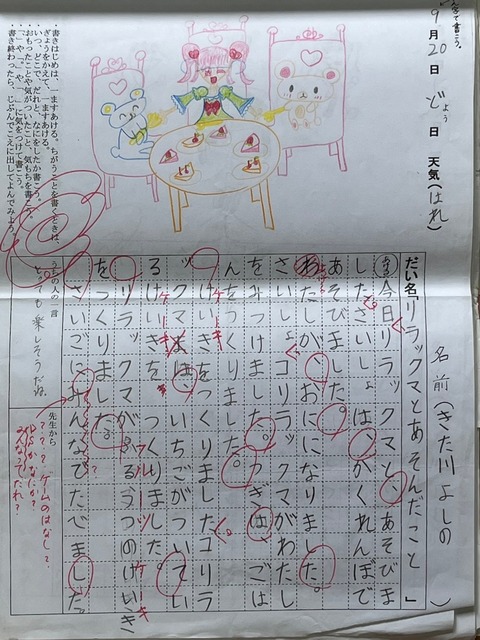 9月20日 どよう日 天気(はれ)
書きはじめは、一ますあける。ちがうことを書くときは、
ぎょうをかえて、一ますあける。
いつ、どこで、だれと、なにをしたか書こう。
おもったことや気がついたこと、気もちを書こう。
書き終わったら、じぶんでこえに出してよんでみよう。
名前(きた川よしの)
だい名「リラックマとあそんだこと」
今日リラックマと、あそびま
した。さいしょは、かくれんぼで
あそびました。
わたしが、おにになりました。
さいしょ、コリラックマがわたし
をみつけました。つぎは、ごは
んをつくりました。
けいきをつくりました。コリラ
ックマは、いちごがついてい
るけいきを つくりました。
リラックマが、ふるうつのけいき
をつくりました。
さいごにみんなびたべました。
ケーキ
ケーキ
フルーツ
ケーキ
うちの人の一言
とっても楽しそうだね。
先生から
???ゲームのはなし?
みんなってだれ?